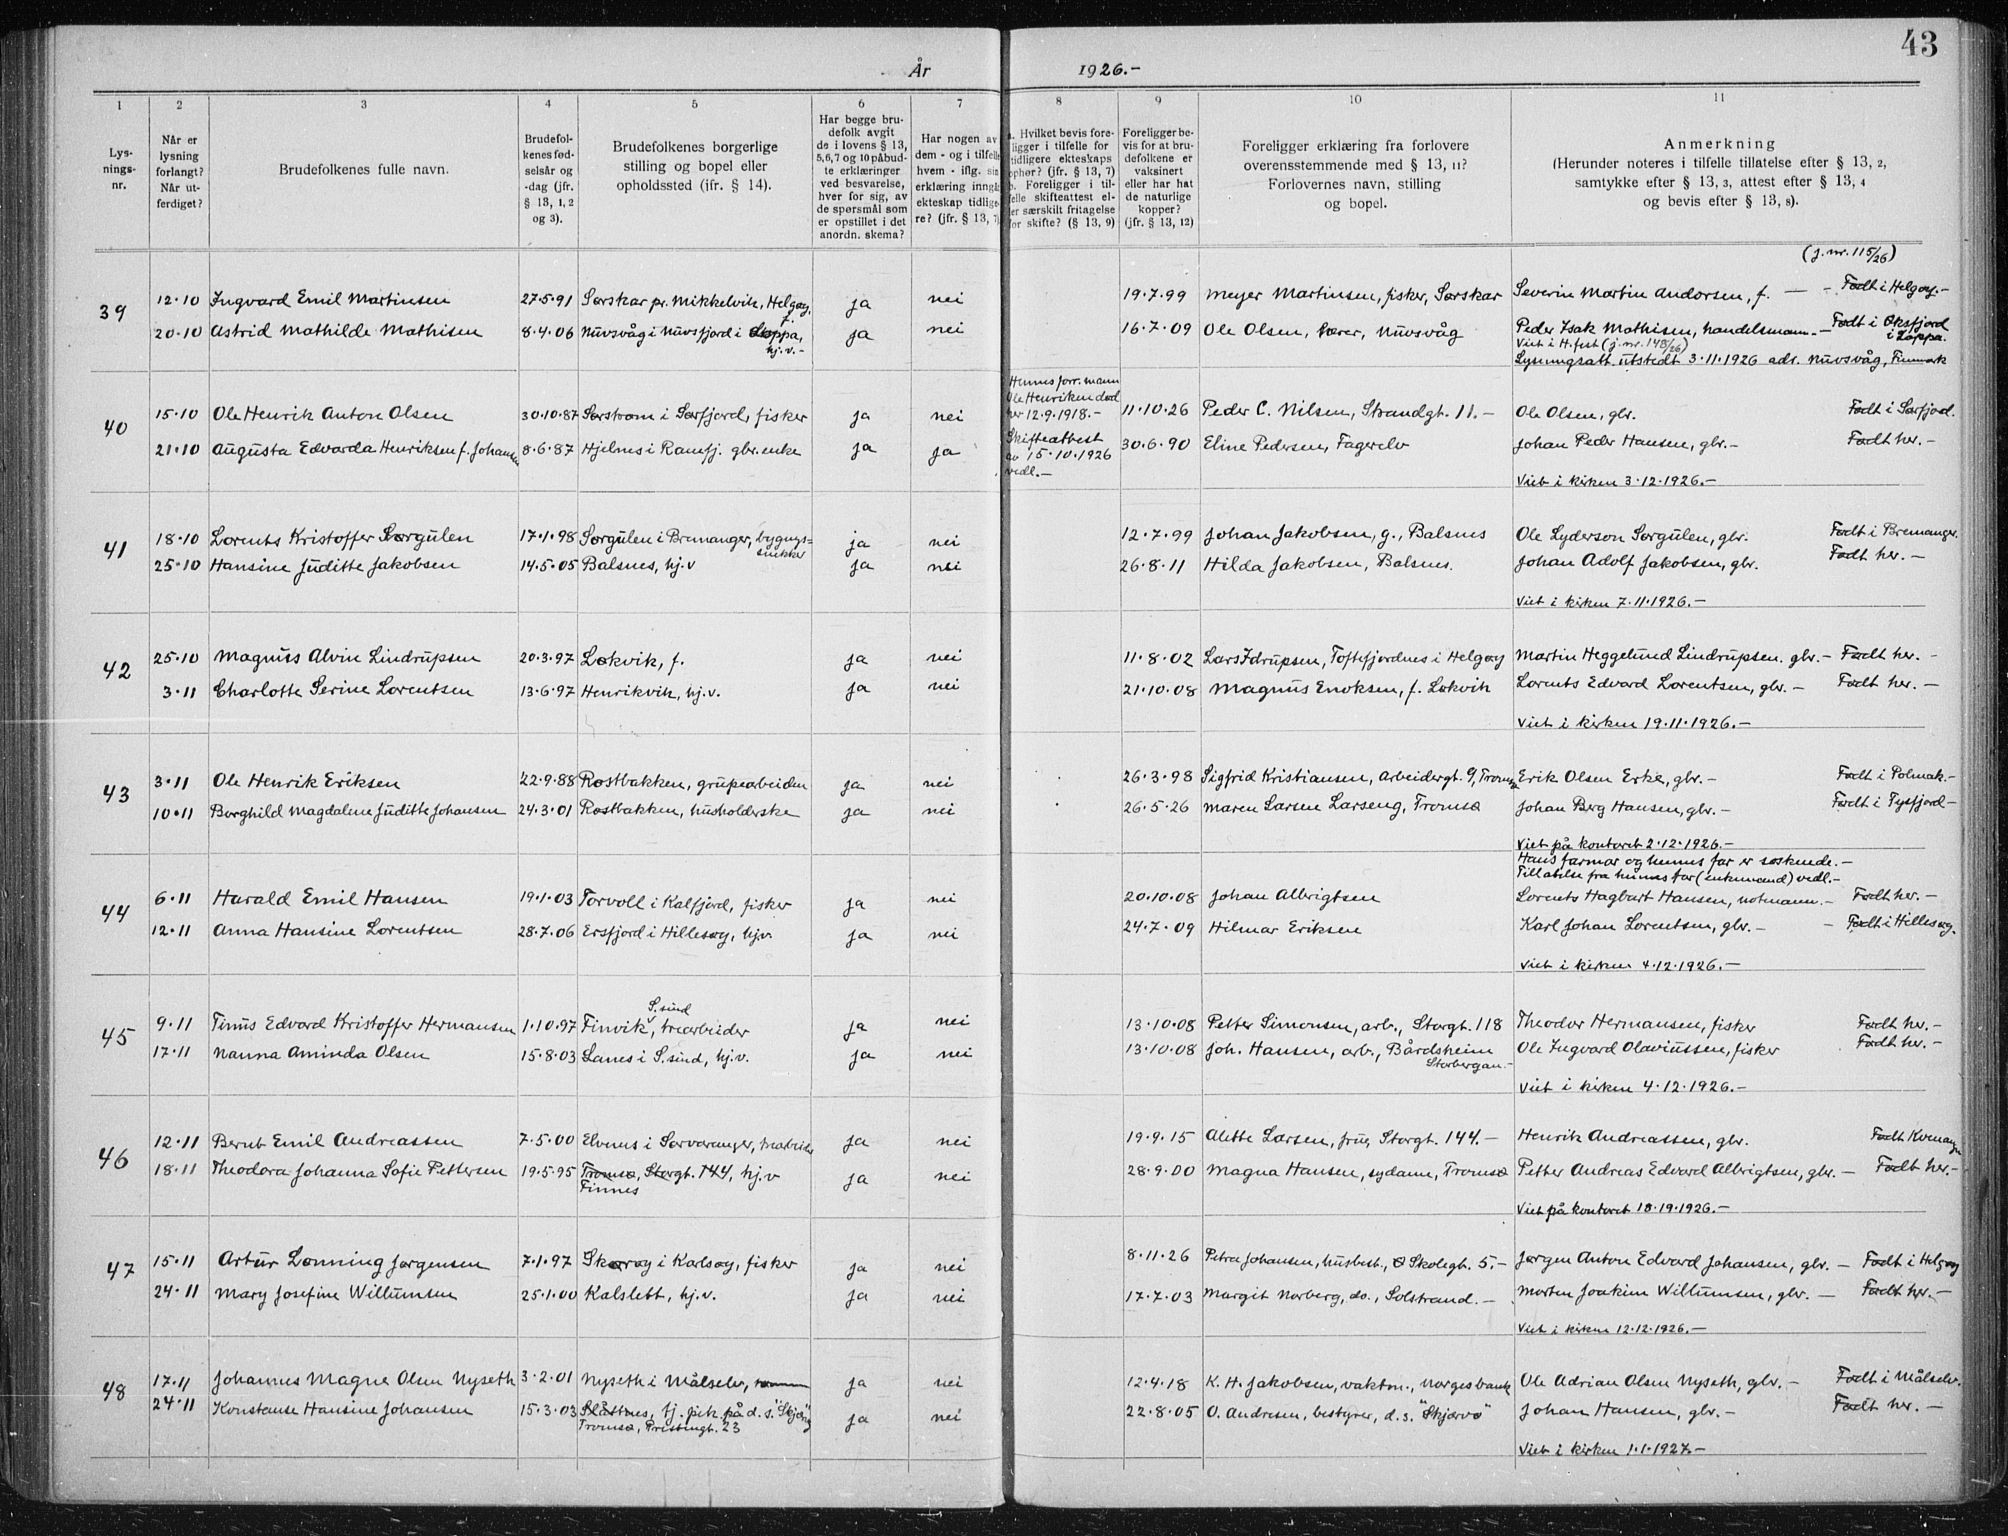 43
År 1926.-
1 2 3 4 5 6 7 8 9 10 11
Lys-
nings-
nr.
Når er
lysning
forlangt?
Når ut-
ferdiget?
Brudefolkenes fulle navn.
Brudefol-
kenes fød-
selsår og
-dag (jfr.
§ 13, 1, 2
og 3).
Brudefolkenes borgerlige
stilling og bopel eller
opholdssted (jfr. § 14).
Har begge bru-
defolk avgit
de i lovens § 13,
5,6,7 og 10 påbud-
te erklæringer
ved besvarelse,
hver for sig, av
de spørsmål som
er opstillet i det
anordn. skema?
Har nogen av
dem - og i tilfelle
hvem - iflg. sin
erklæring inngk
ekteskap tidlige-
re? (jfr. § 13, 7)
a. Hvilket bevis fore-
ligger i tilfelle for
tidligere ekteskaps
ophør? (jfr. § 13, 7)
b. Foreligger i til-
felle skifteattest el-
ler særskilt fritagelse
for skifte? (§ 13, 9)
Foreligger be-
vis for at bru-
defolkene er
vaksinert
eller har hat
de naturlige
kopper?
(jfr. § 13, 12)
Foreligger erklæring fra forlovere
overensstemmende med § 13, 11?
Forlovernes navn, stilling
og bopel.
Anmerkning
(Herunder noteres i tilfelle tillatelse efter § 13, 2,
samtykke efter § 13, 3, attest efter § 13, 4
og bevis efter § 13, 8).
(j.nr. 115/26)
39 12.10 Ingvard Emil Martinsen 27.5.91 Sørskar pr. Mikkelvik, Helgøy, f. ja nei 19.7.99 Meyer Martinsen, fisker, Sørskar Severin Martin Andorsen, f. — - Født i Helgøy.-
20.10 Astrid Mathilde Mathisen 8.4.06 Nuvsvåg i Nuvsfjord i Loppa, hj.v.- ja nei 16.7.09 Ole Olsen, lærer, Nuvsvåg Peder Isak Mathisen, handelsmann.- Født i Øksfjord i Loppa.
Viet i H.fest (j.nr. 148/26)
Lysningsatt. utstedt 3.11.1926 adr. Nuvsvåg, Finmark
40 15.10 Ole Henrik Anton Olsen 30.10.87 Sørstrøm i Sørfjord, fisker ja nei 11.10.26 Peder C. Nilsen, Strandgt. 11.- Ole Olsen, gbr. Født i Sørfjord.
Hennes forr. mann
Ole Henriksen død
her 12.9.1918.-
Skifteattest
av 15.10.1926
vedl.-
21.10 Augusta Edvarda Henriksen f. Johansen 8.6.87 Hjelnes i Ramfj. gbr.enke ja ja 30.6.90 Eline Pedersen, Fagerelv Johan Peder Hansen, gbr.- Født her.-
Viet i kirken 3.12.1926.-
41 18.10 Lorents Kristoffer Sørgulen 17.1.98 Sørgulen i Bremanger, bygnings-
snekker ja nei 12.7.99 Johan Jakobsen, g., Balsnes Ole Lyderson Sørgulen, gbr. Født i Bremanger.
25.10 Hansine Juditte Jakobsen 14.5.05 Balsnes, hj.v ja nei 26.8.11 Hilda Jakobsen, Balsnes. Johan Adolf Jakobsen, gbr. Født her.-
Viet i kirken 7.11.1926.-
42 25.10 Magnus Alvin Lindrupsen 20.3.97 Løkvik, f. ja nei 11.8.02 Lars Idrupsen, Toftefjordnes i Helgøy Martin Heggelund Lindrupsen. gbr.- Født her.-
3.11 Charlotte Serine Lorentsen 13.6.97 Henrikvik, hj.v. ja nei 21.10.08 Magnus Enoksen, f. Løkvik Lorents Edvard Lorentsen, gbr.- Født her.-
Viet i kirken 19.11.1926.-
43 3.11 Ole Henrik Eriksen 22.9.88 Røstbakken, grubearbeider ja nei 26.3.98 Sigfrid Kristiansen, Arbeidergt. 9, Tromsø Erik Olsen Erke, gbr.- Født i Polmak.-
10.11 Borghild Magdalene Juditte Johansen 24.3.01 Røstbakken, husholderske ja nei 26.5.26 Maren Larsen Larseng, Tromsø Johan Berg Hansen, gbr.- Født i Tysfjord-
Viet på kontoret 2.12.1926.-
Hans farmor og hennes far er søskende.-
Tillatelse fra hennes far (enkemand) vedl.-
44 6.11 Harald Emil Hansen 19.1.03 Torvoll i Kalfjord, fisker ja nei 20.10.08 Johan Albrigtsen Lorents Hagbart Hansen, notmann.- Født her.-
12.11 Anna Hansine Lorentsen 28.7.06 Ersfjord i Hillesøy, hj.v. ja nei 24.7.09 Hilmar Eriksen Karl Johan Lorentsen, gbr.- - Født i Hillesøy.
Viet i kirken 4.12.1926.-
45 9.11 Tinus Edvard Kristoffer Hermansen 1.10.97 Finvik, S.sund trearbeider ja nei 13.10.08 Petter Simonsen, arb., Storgt. 118 Theodor Hermansen, fisker Født her.-
17.11 Nanna Aminda Olsen 15.8.03 Lanes i S.sund, hj.v. ja nei 13.10.08 Joh. Hansen, arb., Bårdsheim
Storbergan- Ole Ingvard Olaviussen, fisker Født her.-
Viet i kirken 4.12.1926.-
46 12.11 Bernt Emil Andreassen 7.5.00 Elvenes i Sørvaranger, ja nei 19.9.15 Alette Larsen, frue, Storgt. 144.- Henrik Andreassen, gbr. Født
18.11 Theodora Johanna Sofie Pettersen 19.5.95 Tromsø, Storgt. 144, hj.v
Finnes ja nei 28.9.00 Magna Hansen, sydame, Tromsø Petter Andreas Edvard Albrigtsen, gbr.- Født her.-
Viet på kontoret 18.19.1926.-
47 15.11 Artur Lønning Jørgensen 7.1.97 Skorøy i Karlsøy, fisker ja nei 8.11.26 Petra Johansen, husbest., Ø Skolegt. 5.- Jørgen Anton Edvard Johansen, gbr.- Født i Helgøy
24.11 Mary Josefine Willumsen 25.1.00 Kalslett, hj.v. ja nei 17.7.03 Margit Norberg, do., Solstrand.- Morten Joakim Willumsen, gbr.- Født her.-
Viet i kirken 12.12.1926.-
48 17.11 Johannes Magne Olsen Nyseth 3.2.01 Nyseth i Målselv, ja nei 12.4.18 K. H. Jakobsen, vaktm., Norges bank Ole Adrian Olsen Nyseth, gbr.- Født i Målselv.
24.11 Konstanse Hansine Johansen 15.3.03 Slåttnes, tj. pik. på d.s. "Skjærvø"
Tromsø, Prestengt. 23 ja nei 22.8.05 O. Andresen, bestyrer, d.s. "Skjærvø" Johan Hansen, gbr.- Født her.-
Viet i kirken 1.1.1927.-